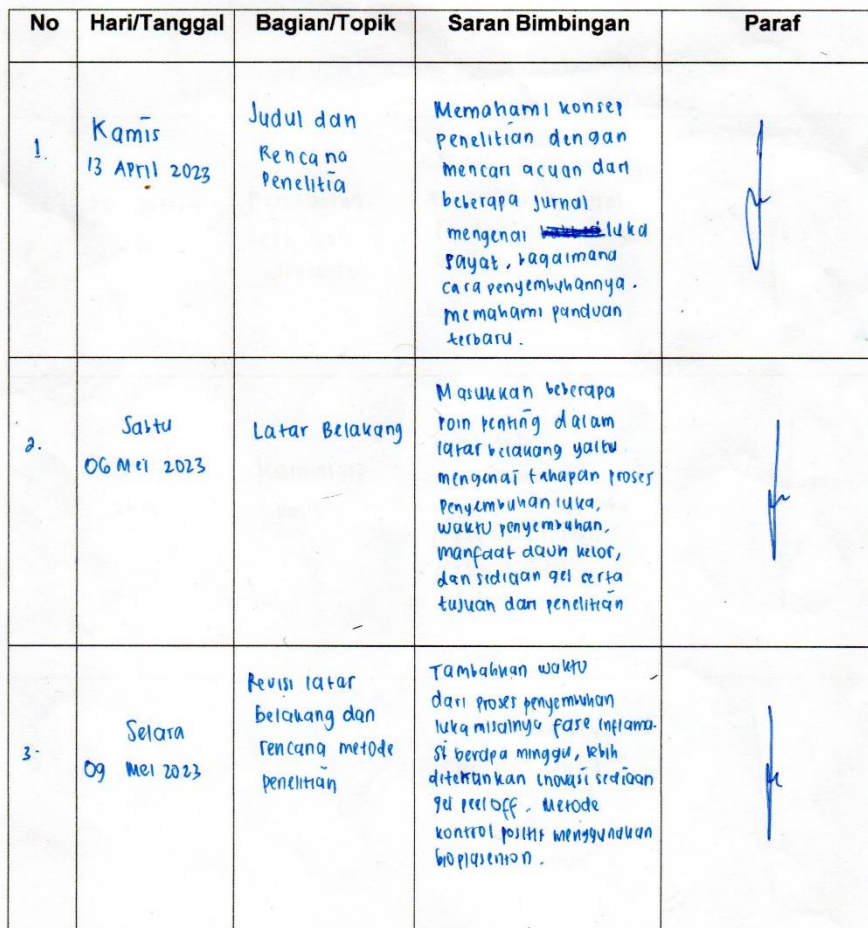 No Hari/Tanggal Bagian/Topik Saran Bimbingan Paraf
1.
Kamis
13 April 2023
Judul dan
Rencana
Penelitia
Memahami konsep
penelitian dengan
mencari acuan dari
beberapa jurnal
mengenai luka
sayat, bagaimana
cara penyembuhannya.
memahami panduan
terbaru.
2.
Sabtu
06 Mei 2023
Latar Belakang
Masukkan beberapa
poin penting dalam
latar belakang yaitu
mengenai tahapan proses
penyembuhan luka,
waktu penyembuhan,
manfaat daun kelor,
dan sediaan gel serta
tujuan dari penelitian
3.
Selasa
09 Mei 2023
Revisi latar
belakang dan
rencana metode
penelitian
Tambahkan waktu
dari proses penyembuhan
luka misalnya fase inflama-
si berapa minggu, lebih
ditekankan inovasi sediaan
gel peel off. Metode
kontrol positif menggunakan
bioplasenton.